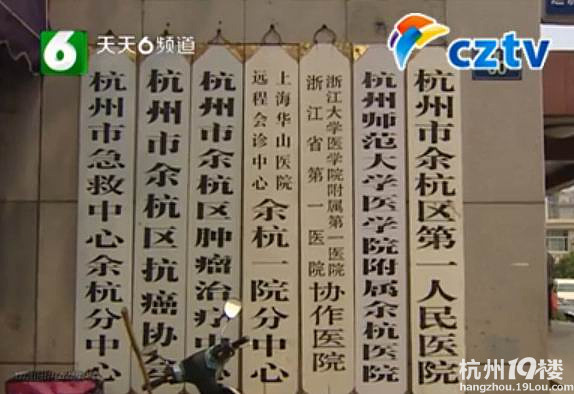 6 天天6频道
cztv
杭州市余杭区第一人民医院
杭州师范大学医学院附属余杭医院
浙江大学医学院附属第一医院
浙江省第一医院
协作医院
上海华山医院
远程会诊中心
余杭一院分中心
杭州市余杭区肿瘤治疗中
杭州市余杭区抗癌协会
杭州市急救中心余杭分中心
杭州19楼
hangzhou.19lou.com